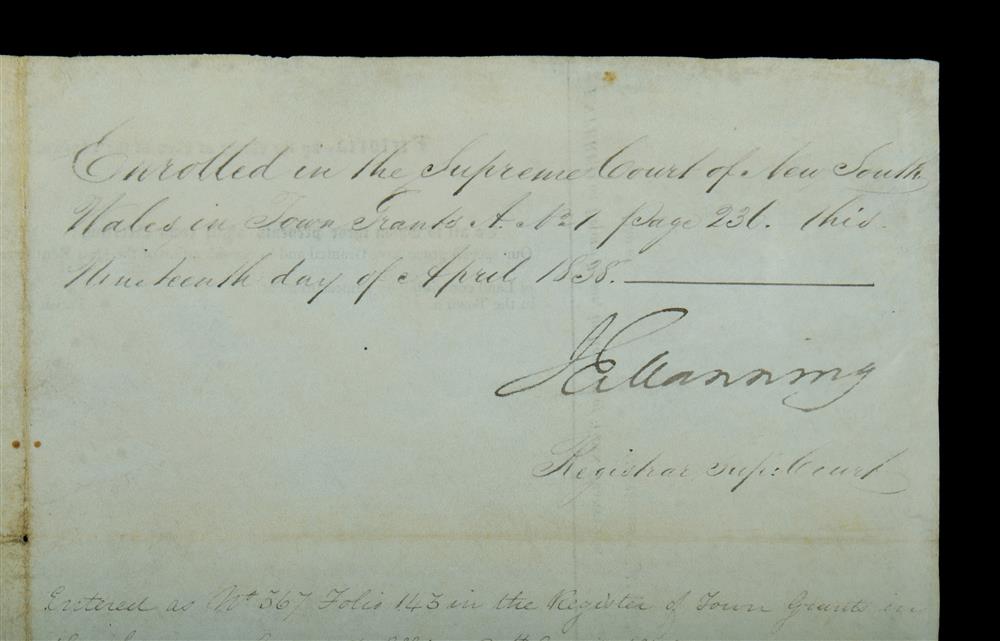 Enrolled in the Supreme Court of New South
Wales in Town Grants A. No 1 page 236. this
Nineteenth day of April 1838.
J E Manning
Registrar Sup: Court
Entered as No 367 Folio 143 in the Register of Town Grants in